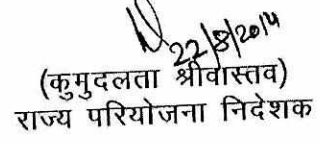 22/8/2014
(कुमुदलता श्रीवास्तव)
राज्य परियोजना निदेशक